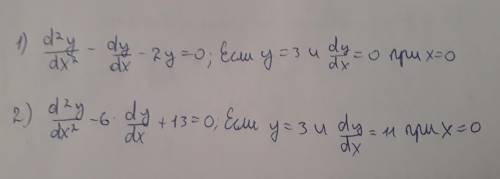 1) d²y/dx² - dy/dx - 2y=0; Если y=3 и dy/dx=0 при x=0
2) d²y/dx² - 6· dy/dx + 13=0; Если y=3 и dy/dx = 11 при x=0